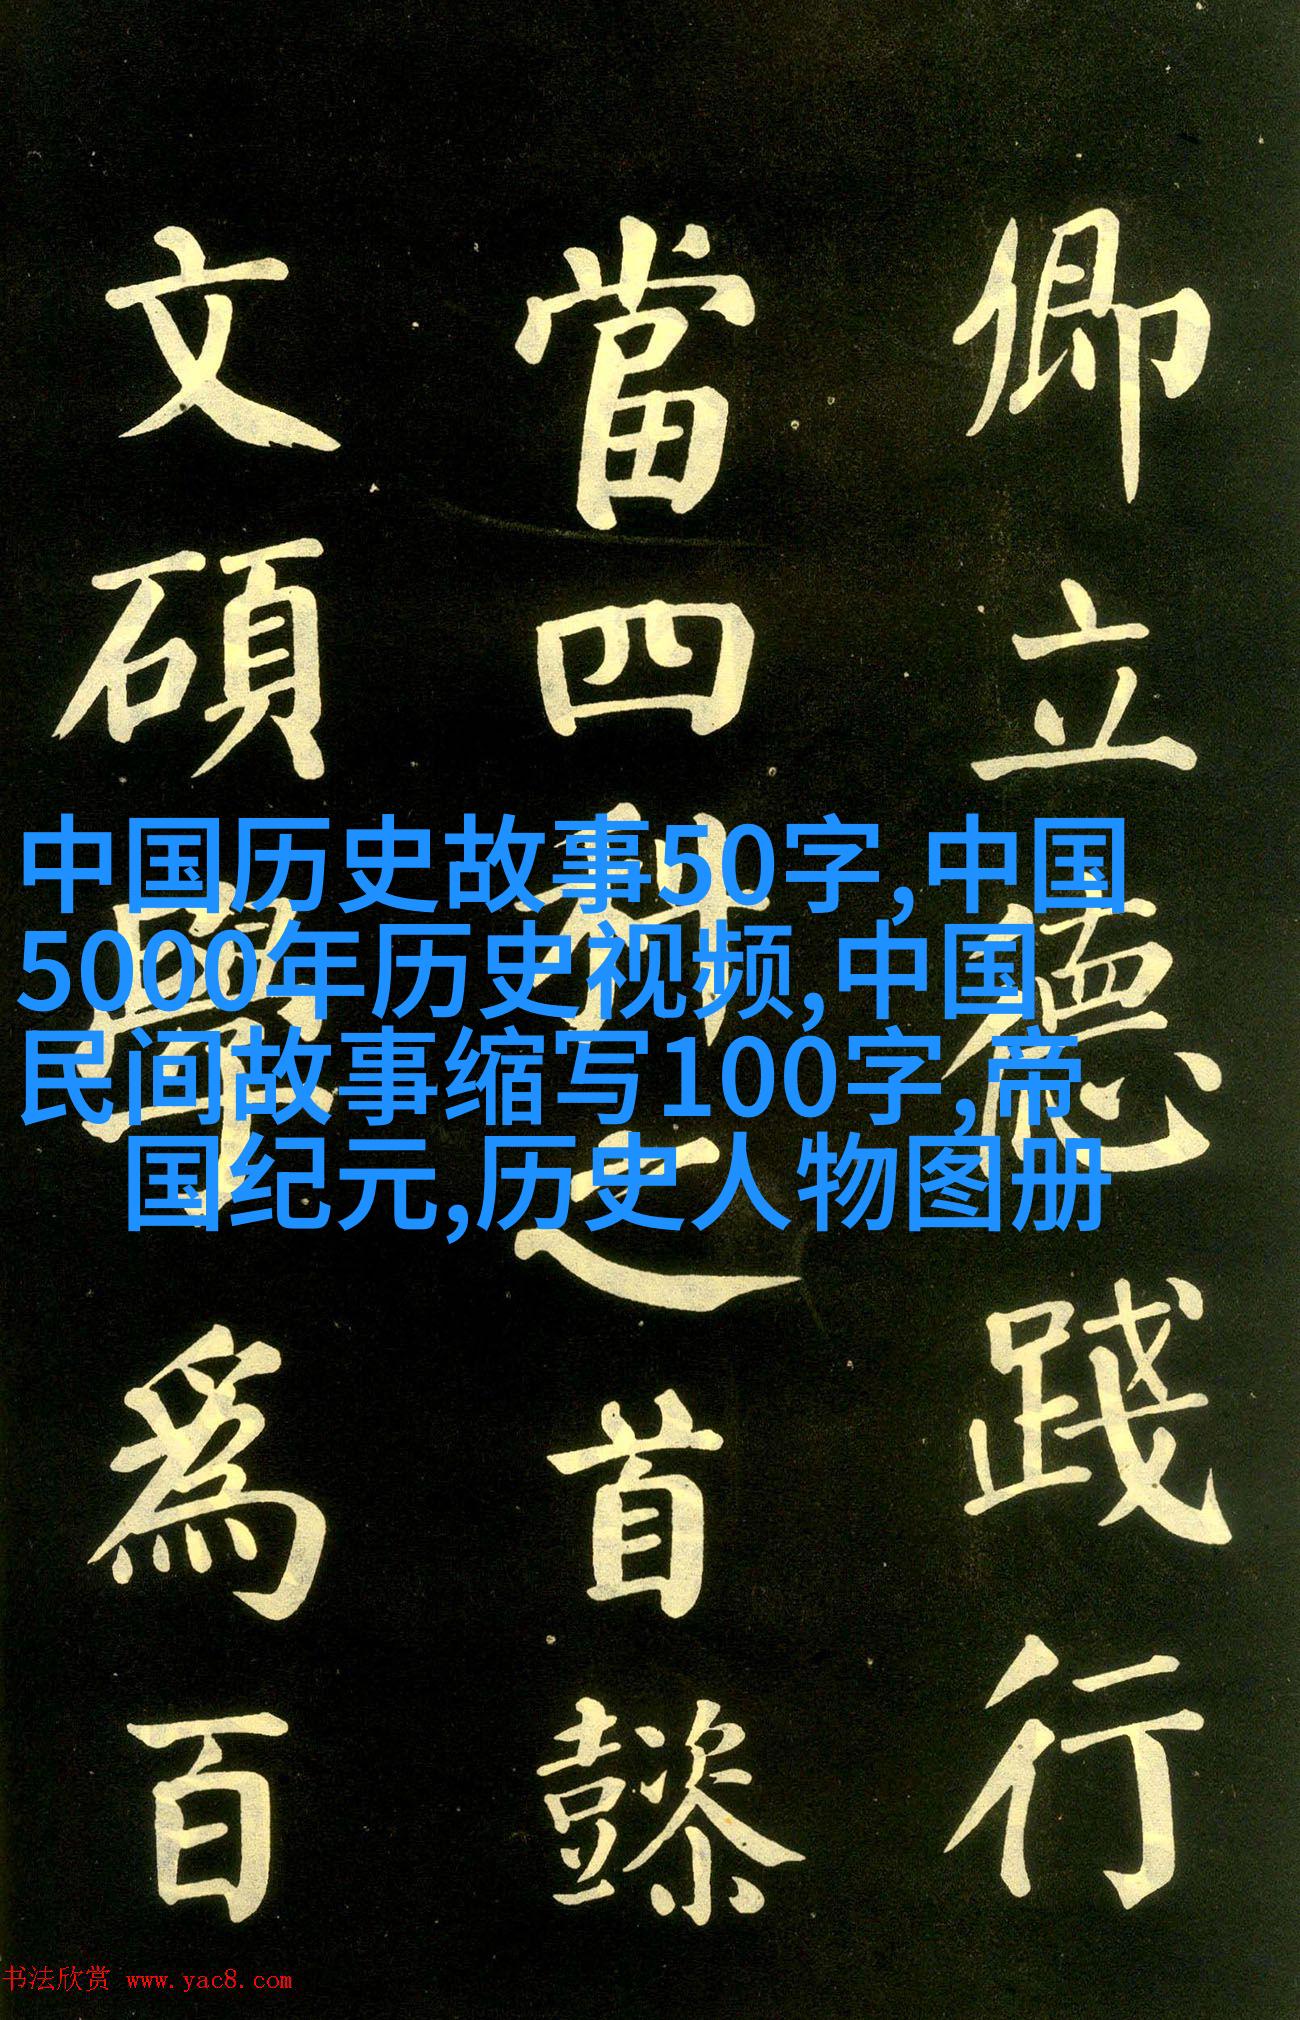 卿立德踐行
當四科之首懿
文碩學爲百
中国历史故事50字,中国
5000年历史视频,中国
民间故事缩写100字,帝
国纪元,历史人物图册
书法欣赏 www.yac8.com